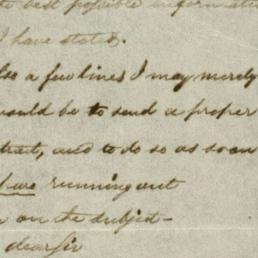 the best possible informatio
I have stated.
lso a few lines I may merely
would be to send a proper
tract, and to do so as soon
running out
on the subject -
dear Sir